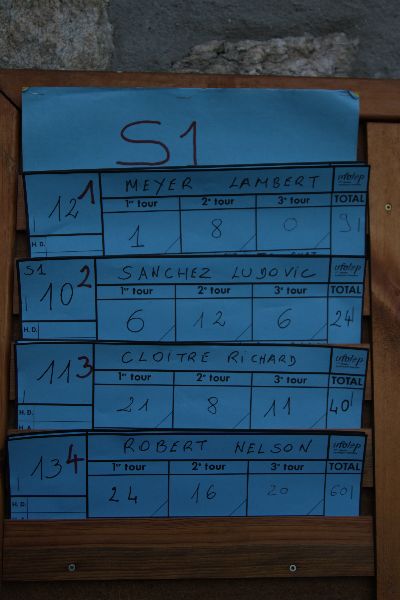 S1
12 1
MEYER LAMBERT
ufolep
1er tour 2e tour 3e tour TOTAL
1 8 0 9
H.D.
S1
10 2
SANCHEZ LUDOVIC
ufolep
1er tour 2e tour 3e tour TOTAL
6 12 6 24
H.D.
11 3
CLOITRE RICHARD
ufolep
1er tour 2e tour 3e tour TOTAL
21 8 11 40
H.D.
13 4
ROBERT NELSON
ufolep
1er tour 2e tour 3e tour TOTAL
24 16 20 60
H.D.